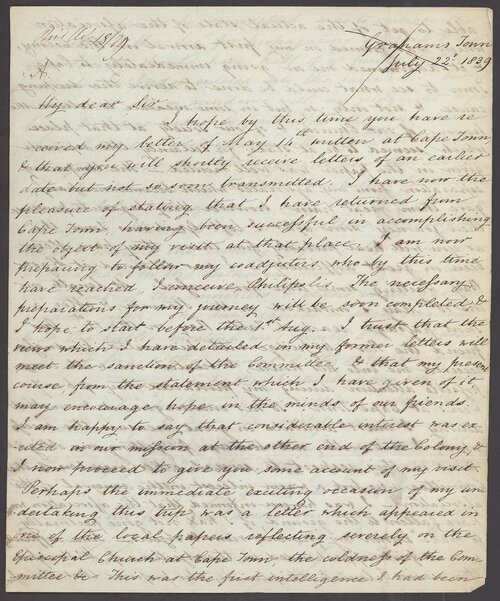 Grahams Town
July 22d 1839
My dear Sir
I hope by this time you have re
ceived my letter of May 14th written at Cape Town
& that you will shortly receive letters of an earlier
date but not so soon transmitted. I have now the
pleasure of stating that I have returned from
Cape Town, having been successful in accomplishing
the object of my visit at that place. I am now
preparing to follow my coadjutors who by this time
have reached I conceive, Philipolis. The necessary
preparations for my journey will be soon completed &
I hope to start before the 1st Aug. I trust that the
views which I have detailed in my former letters will
meet the sanction of the Committee, & that my present
course, from the statement which I have given of it,
may encourage hope in the minds of our friends.
I am happy to say that considerable interest was ex
cited in our mission at the other end of the Colony, &
I now proceed to give you some account of my visit.
Perhaps the immediate exciting occasion of my un
dertaking this trip was a letter which appeared in
one of the local papers reflecting severely on the
Episcopal Church at Cape Town, the coldness of the Com
mittee &c This was the first intelligence I had been